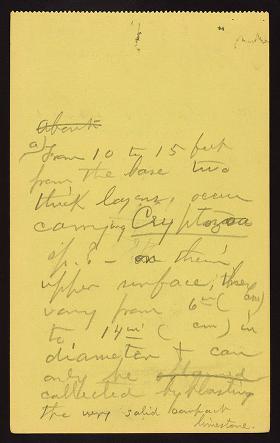 About
a) From 10 to 15 feet
from the base two
thick layers, occur
carrying Cryptozoa
sp.? - on their
upper surface; they
vary from 6 in ( cm)
to 14 in ( cm) in
diameter & can
only be obtained
collected by blasting
the very solid compact
limestone.